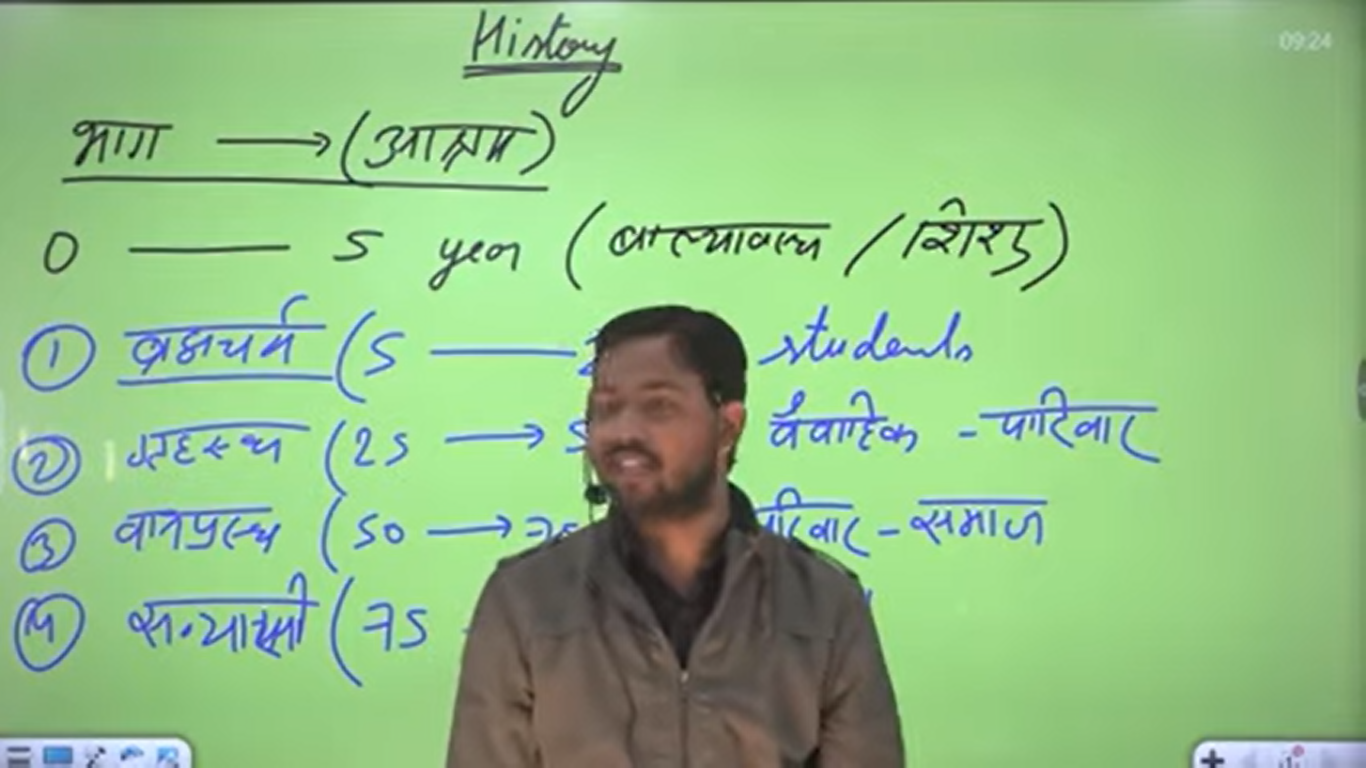 History
09:24
भाग → (आश्रम)
0 — 5 year (बाल्यावस्थ / शिशु)
① ब्रह्मचर्य (5 — students
② गृहस्थ (25 → 5 वैवाहिक - परिवार
③ वानप्रस्थ (50 → 75 परिवार - समाज
④ सन्यासी (75